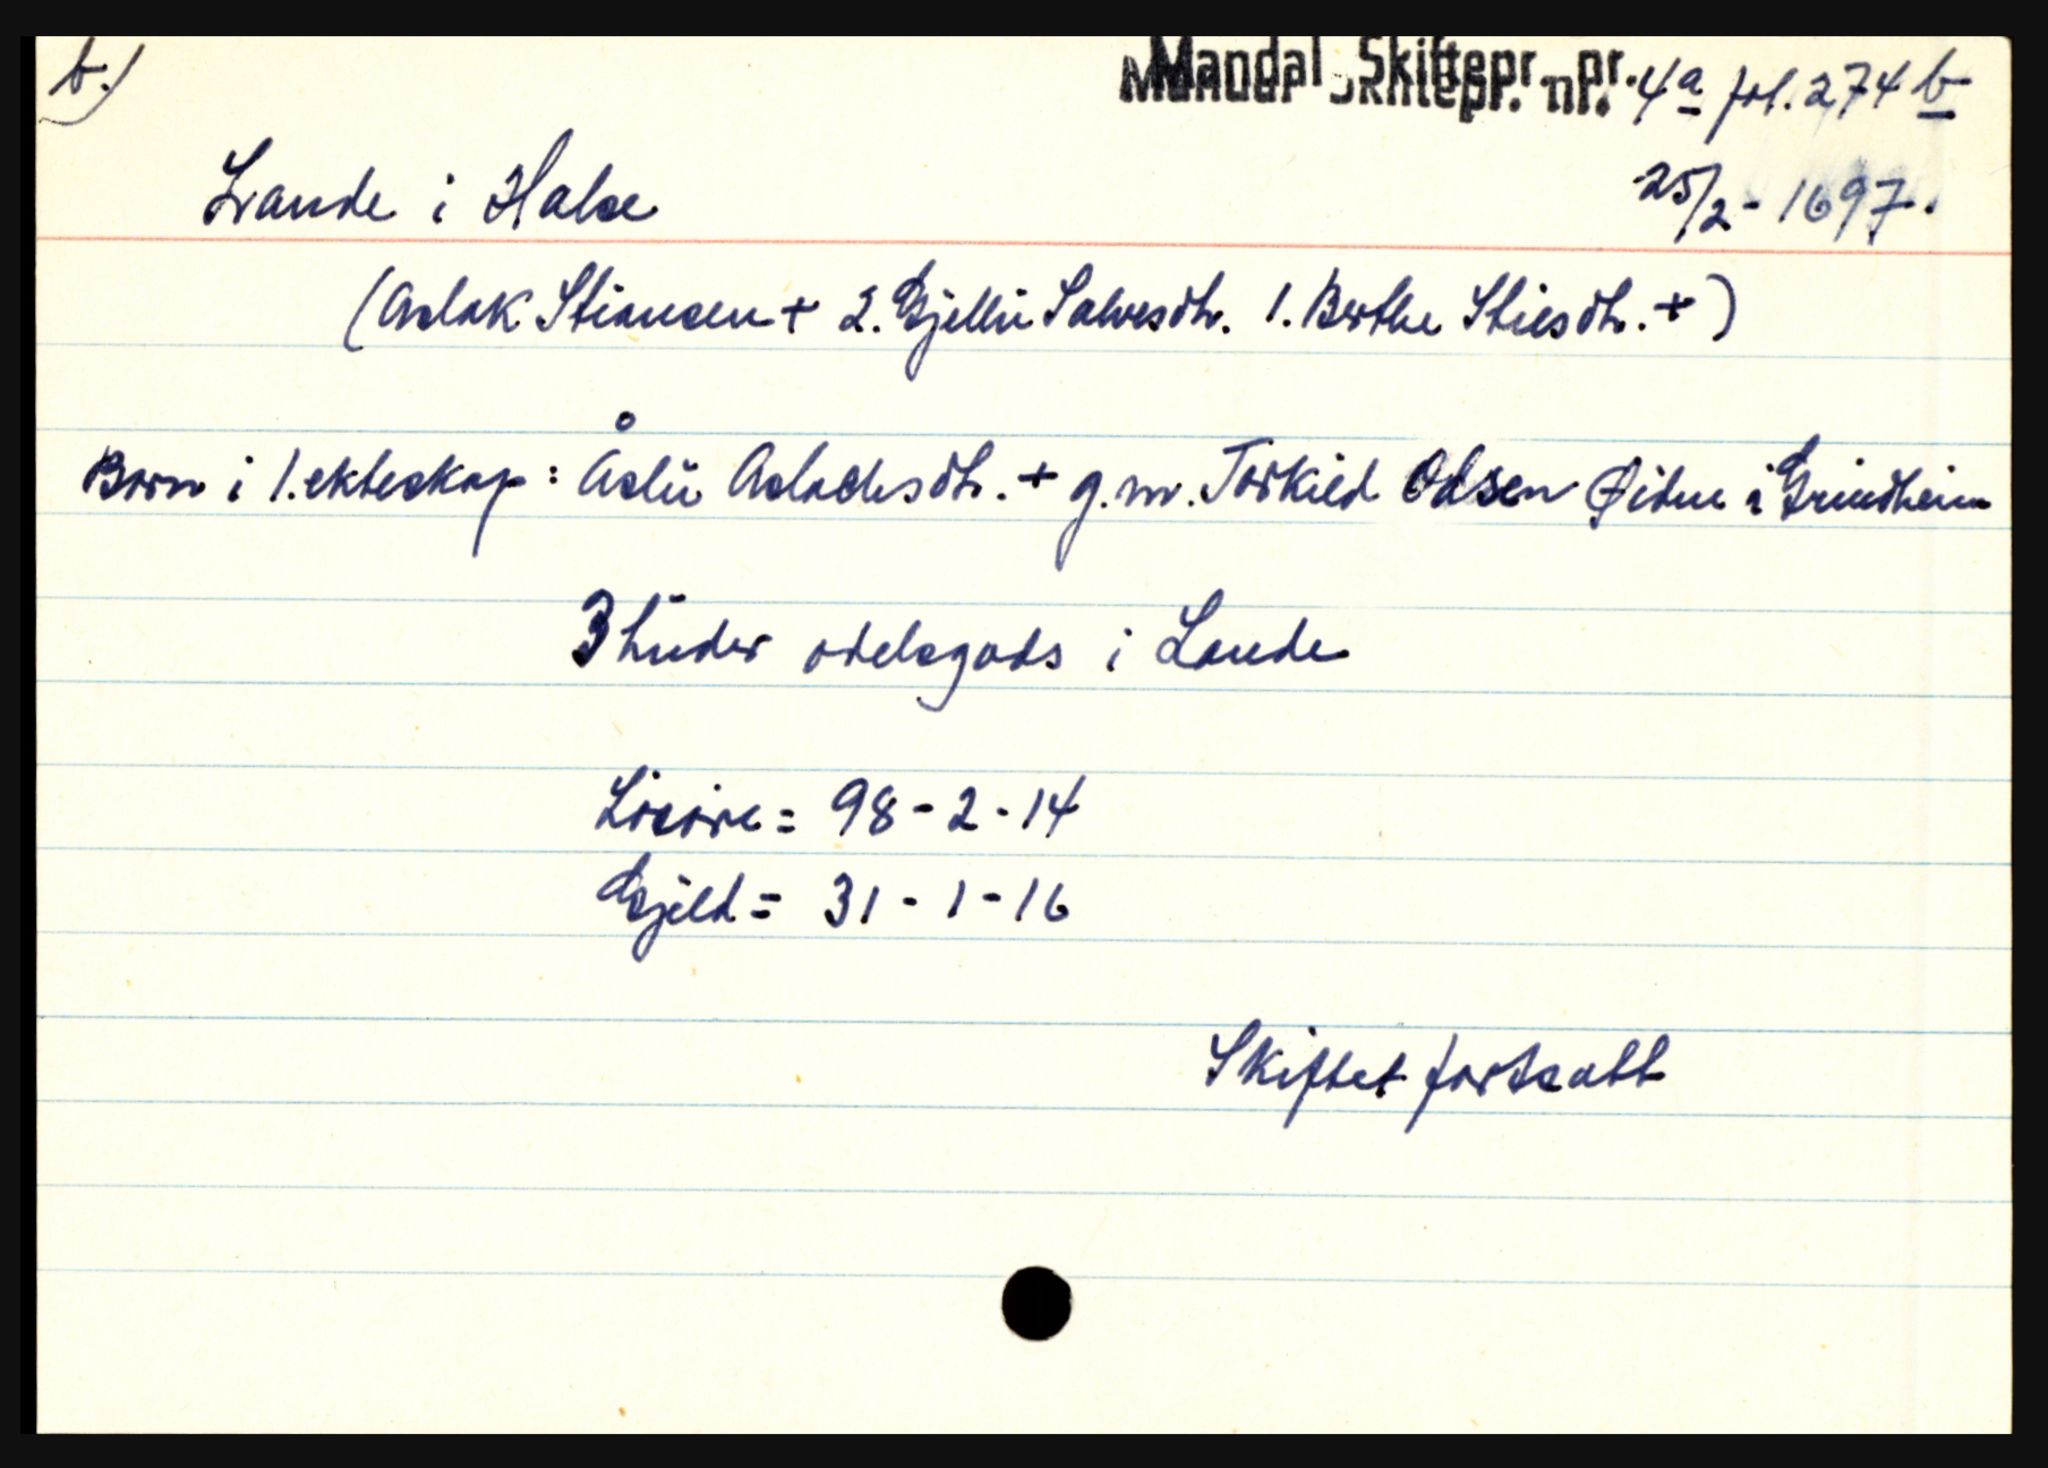 b.)
Mandal Skiftepr. nr. 4a fol. 274 b
Lande i Halse
25/2 - 1697.
(Aslak Stiansen + 2. Gjellu Salvesdtr. 1. Berthe Stiesdtr. +)
Born i 1. ekteskap: Åslu Aslachsdtr. + g.m. Torkild Odsen Øidne i Grindheim
3 huder odelsgods i Lande
Losøre = 98 - 2 - 14
Gjeld = 31 - 1 - 16
Skiftet fortsatt